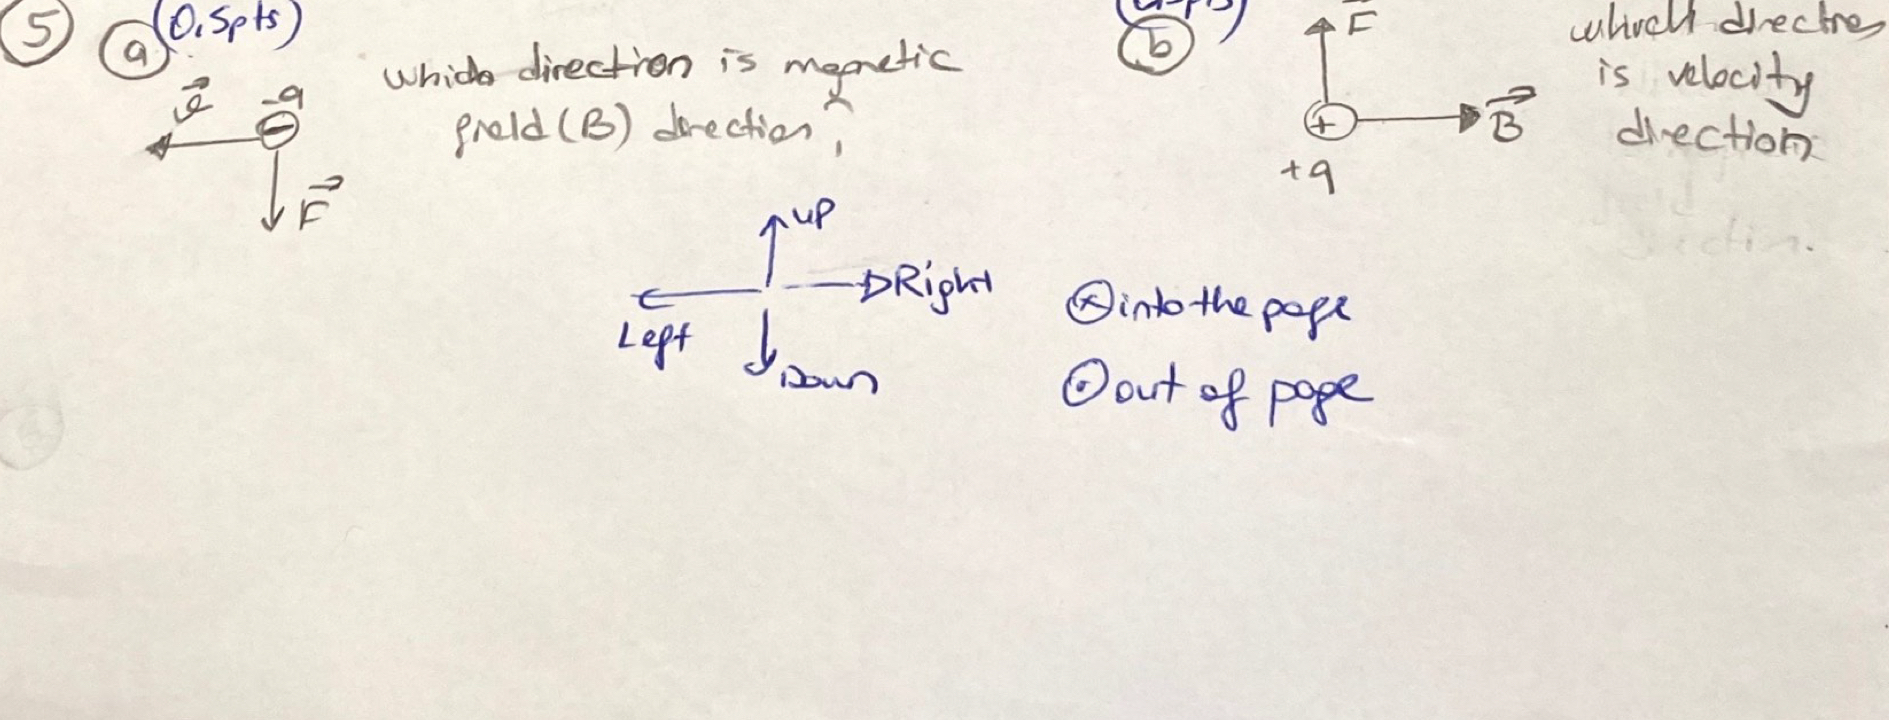 5 a (0.5pts)
which direction is magnetic
field (B) direction?
v -q
F
b
F
B
+q
which
is velocity
direction
up
Right
Left
Down
⊗ into the page
⊙ out of page